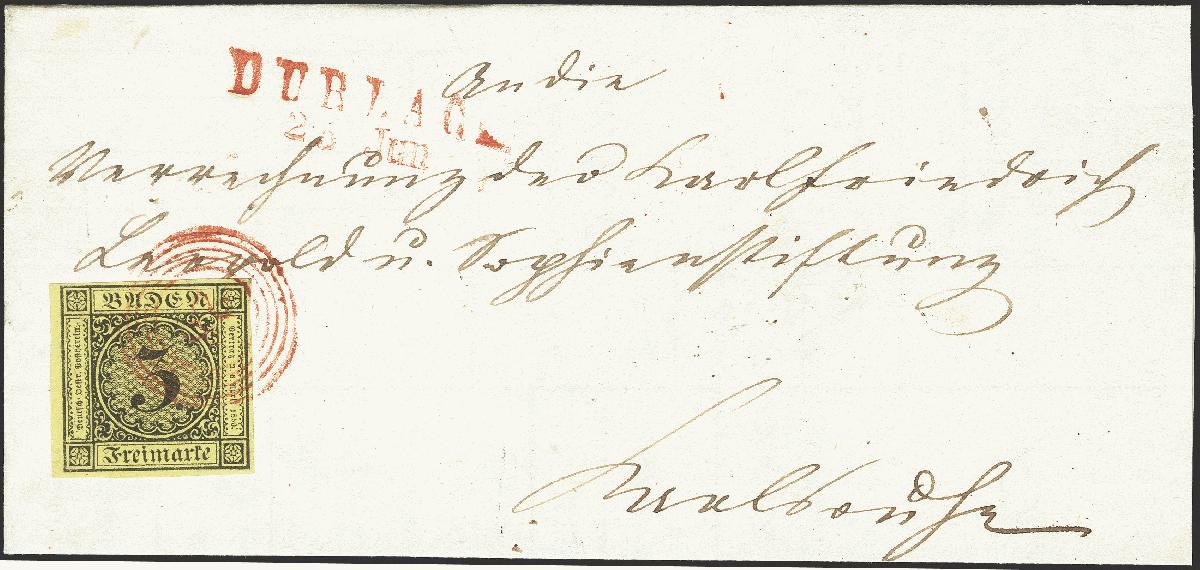 DURLACH
25 Jun
An die
Verrechnung der Karlfriedrich
Leopold u. Sophienstiftung
Karlsruhe
BADEN
Deutsch. Oestr. Postverein.
3
Vertrag v. 6. April 1850.
Freimarke